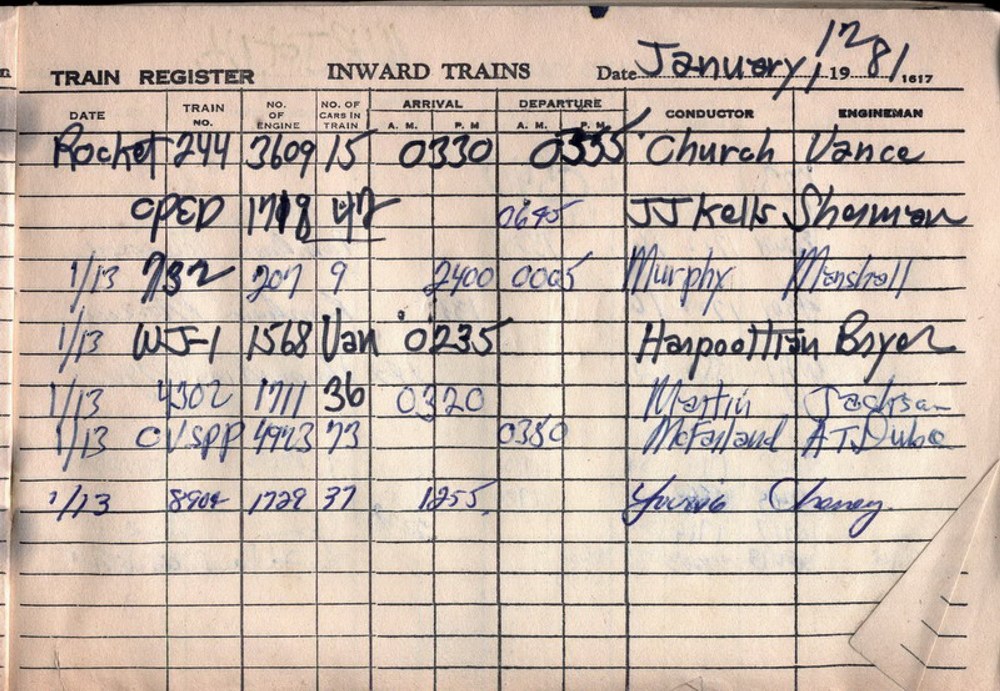 TRAIN REGISTER INWARD TRAINS Date January, 12 1981 1617
DATE TRAIN NO. NO. OF ENGINE NO. OF CARS IN TRAIN ARRIVAL A. M. P. M DEPARTURE A. M. P. M. CONDUCTOR ENGINEMAN
Rocket 244 3609 15 0330 0335 Church Vance
OPED 1718 47 0645 JJ Kells Sherman
1/13 732 207 9 2400 0005 Murphy Marshall
1/13 WJ-1 1568 Van 0235 Harpoothian Bryer
1/13 4302 1711 36 0320 Martin Jackson
1/13 CVSPP 4923 73 0380 McFarland AT Dube
1/13 8904 1729 37 1255 Young Chaney